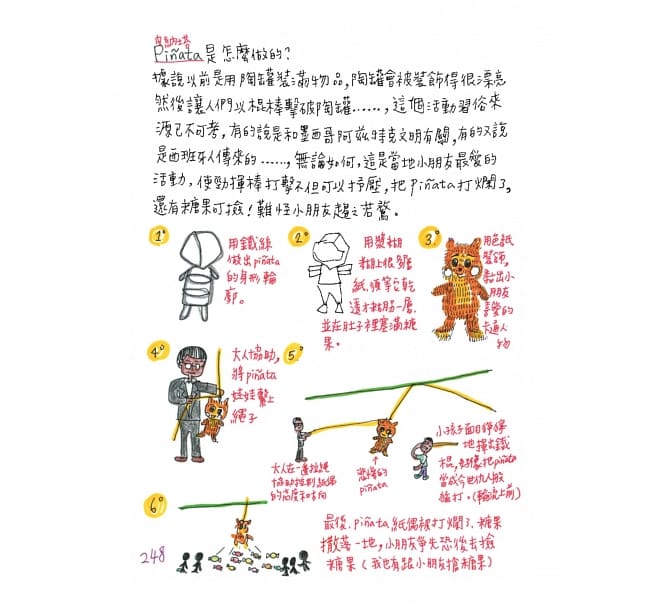 皮納塔
Piñata是怎麼做的?
據說以前是用陶罐裝滿物品,陶罐會被裝飾得很漂亮
然後讓人們以棍棒擊破陶罐……,這個活動習俗來
源已不可考,有的說是和墨西哥阿茲特克文明有關,有的又說
是西班牙人傳來的……,無論如何,這是當地小朋友最愛的
活動,使勁揮棒打擊不但可以抒壓,把Piñata打爛了,
還有糖果可撿!難怪小朋友趨之若鶩。
1°
用鐵絲
做出piñata
的身形輪
廓。
2°
用漿糊
糊上很多層
紙,須等它乾
透才粘貼下一層,
並在肚子裡塞滿糖
果。
3°
用色紙
裝飾,
黏出小
朋友
喜愛的
卡通人
物
4°
大人協助,
將piñata
娃娃繫上
繩子
5°
大人在一邊拉繩
協助控制紙偶
的高度和方向
悲慘的
piñata
小孩子面目猙獰
地揮去鐵
棍,好像把piñata
當成今世仇人般
猛打。(輪流上前)
6°
最後,Piñata紙偶被打爛了,糖果
撒落一地,小朋友爭先恐後去撿
糖果(我也有跟小朋友搶糖果)
248